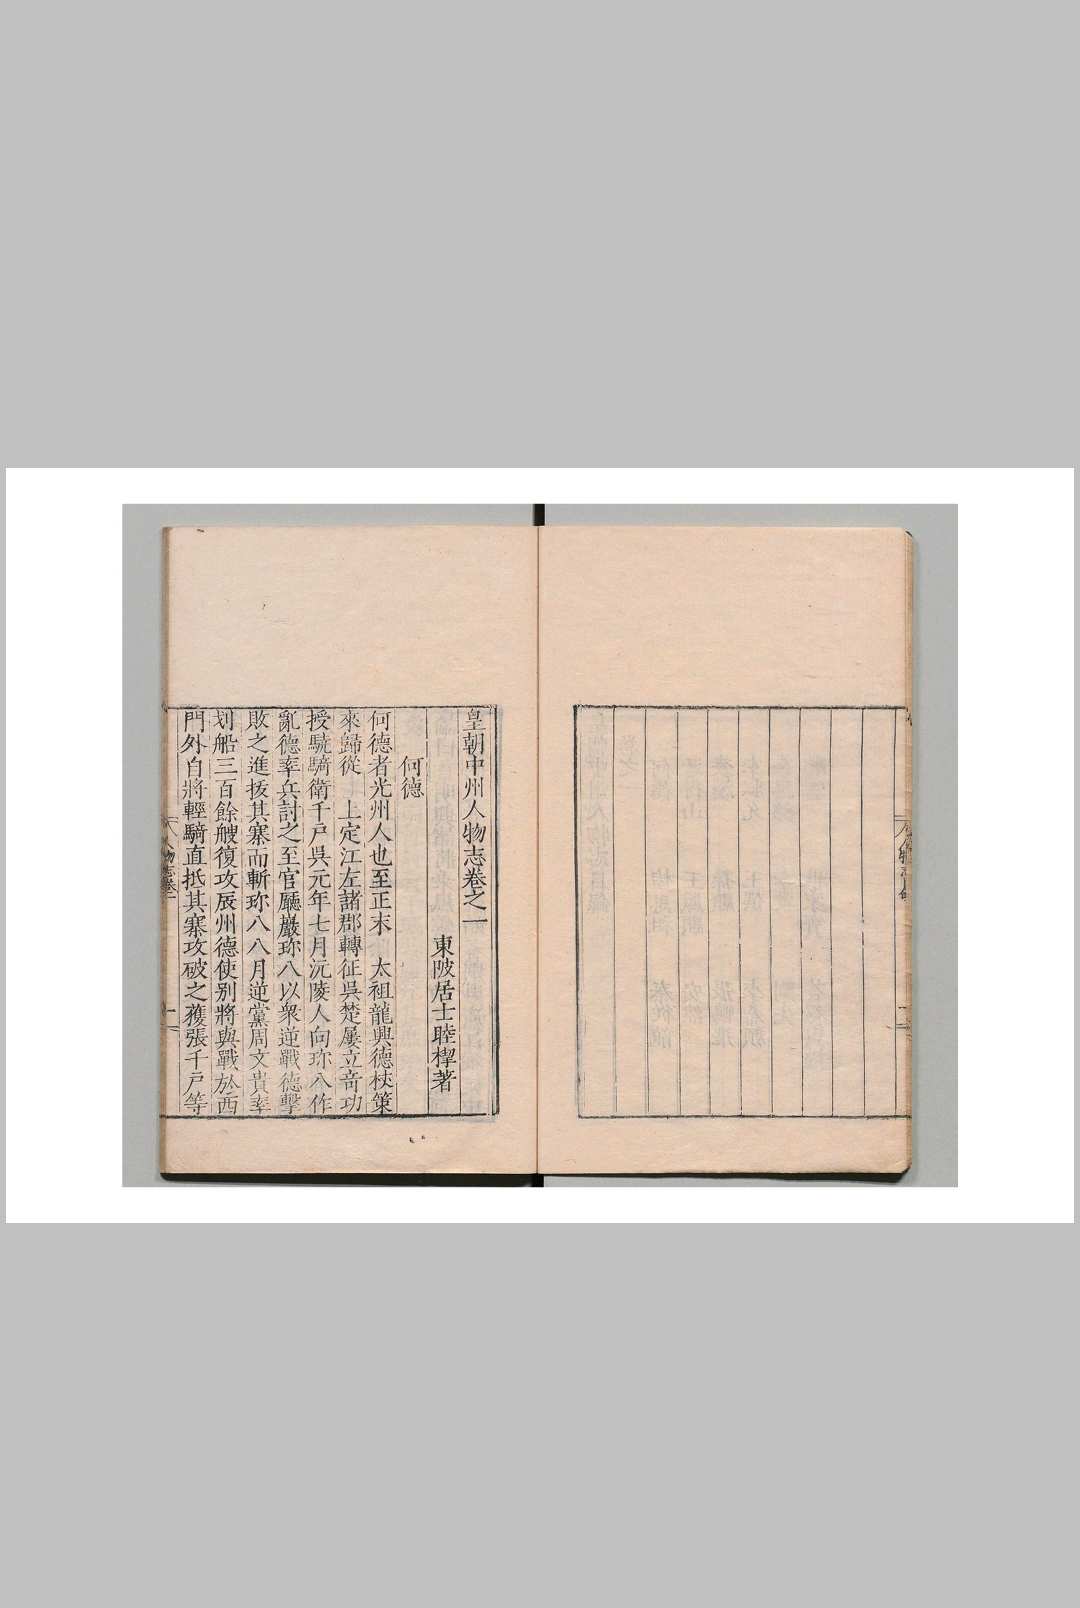 皇朝中州人物志卷之一
東陂居士睦㮮著
何德
何德者光州人也至正末　太祖龍興德杖策
來歸從　上定江左諸郡轉征吳楚屢立竒功
授驍騎衛千戶吳元年七月沅陵人向珎八作
亂德率兵討之至官廳巖珎八以衆逆戰德擊
敗之進抜其寨而斬珎八八月逆黨周文貴率
划船三百餘艘復攻辰州德使别將與戰於西
門外自將輕騎直抵其寨攻破之獲張千戶等
人物志卷一
一